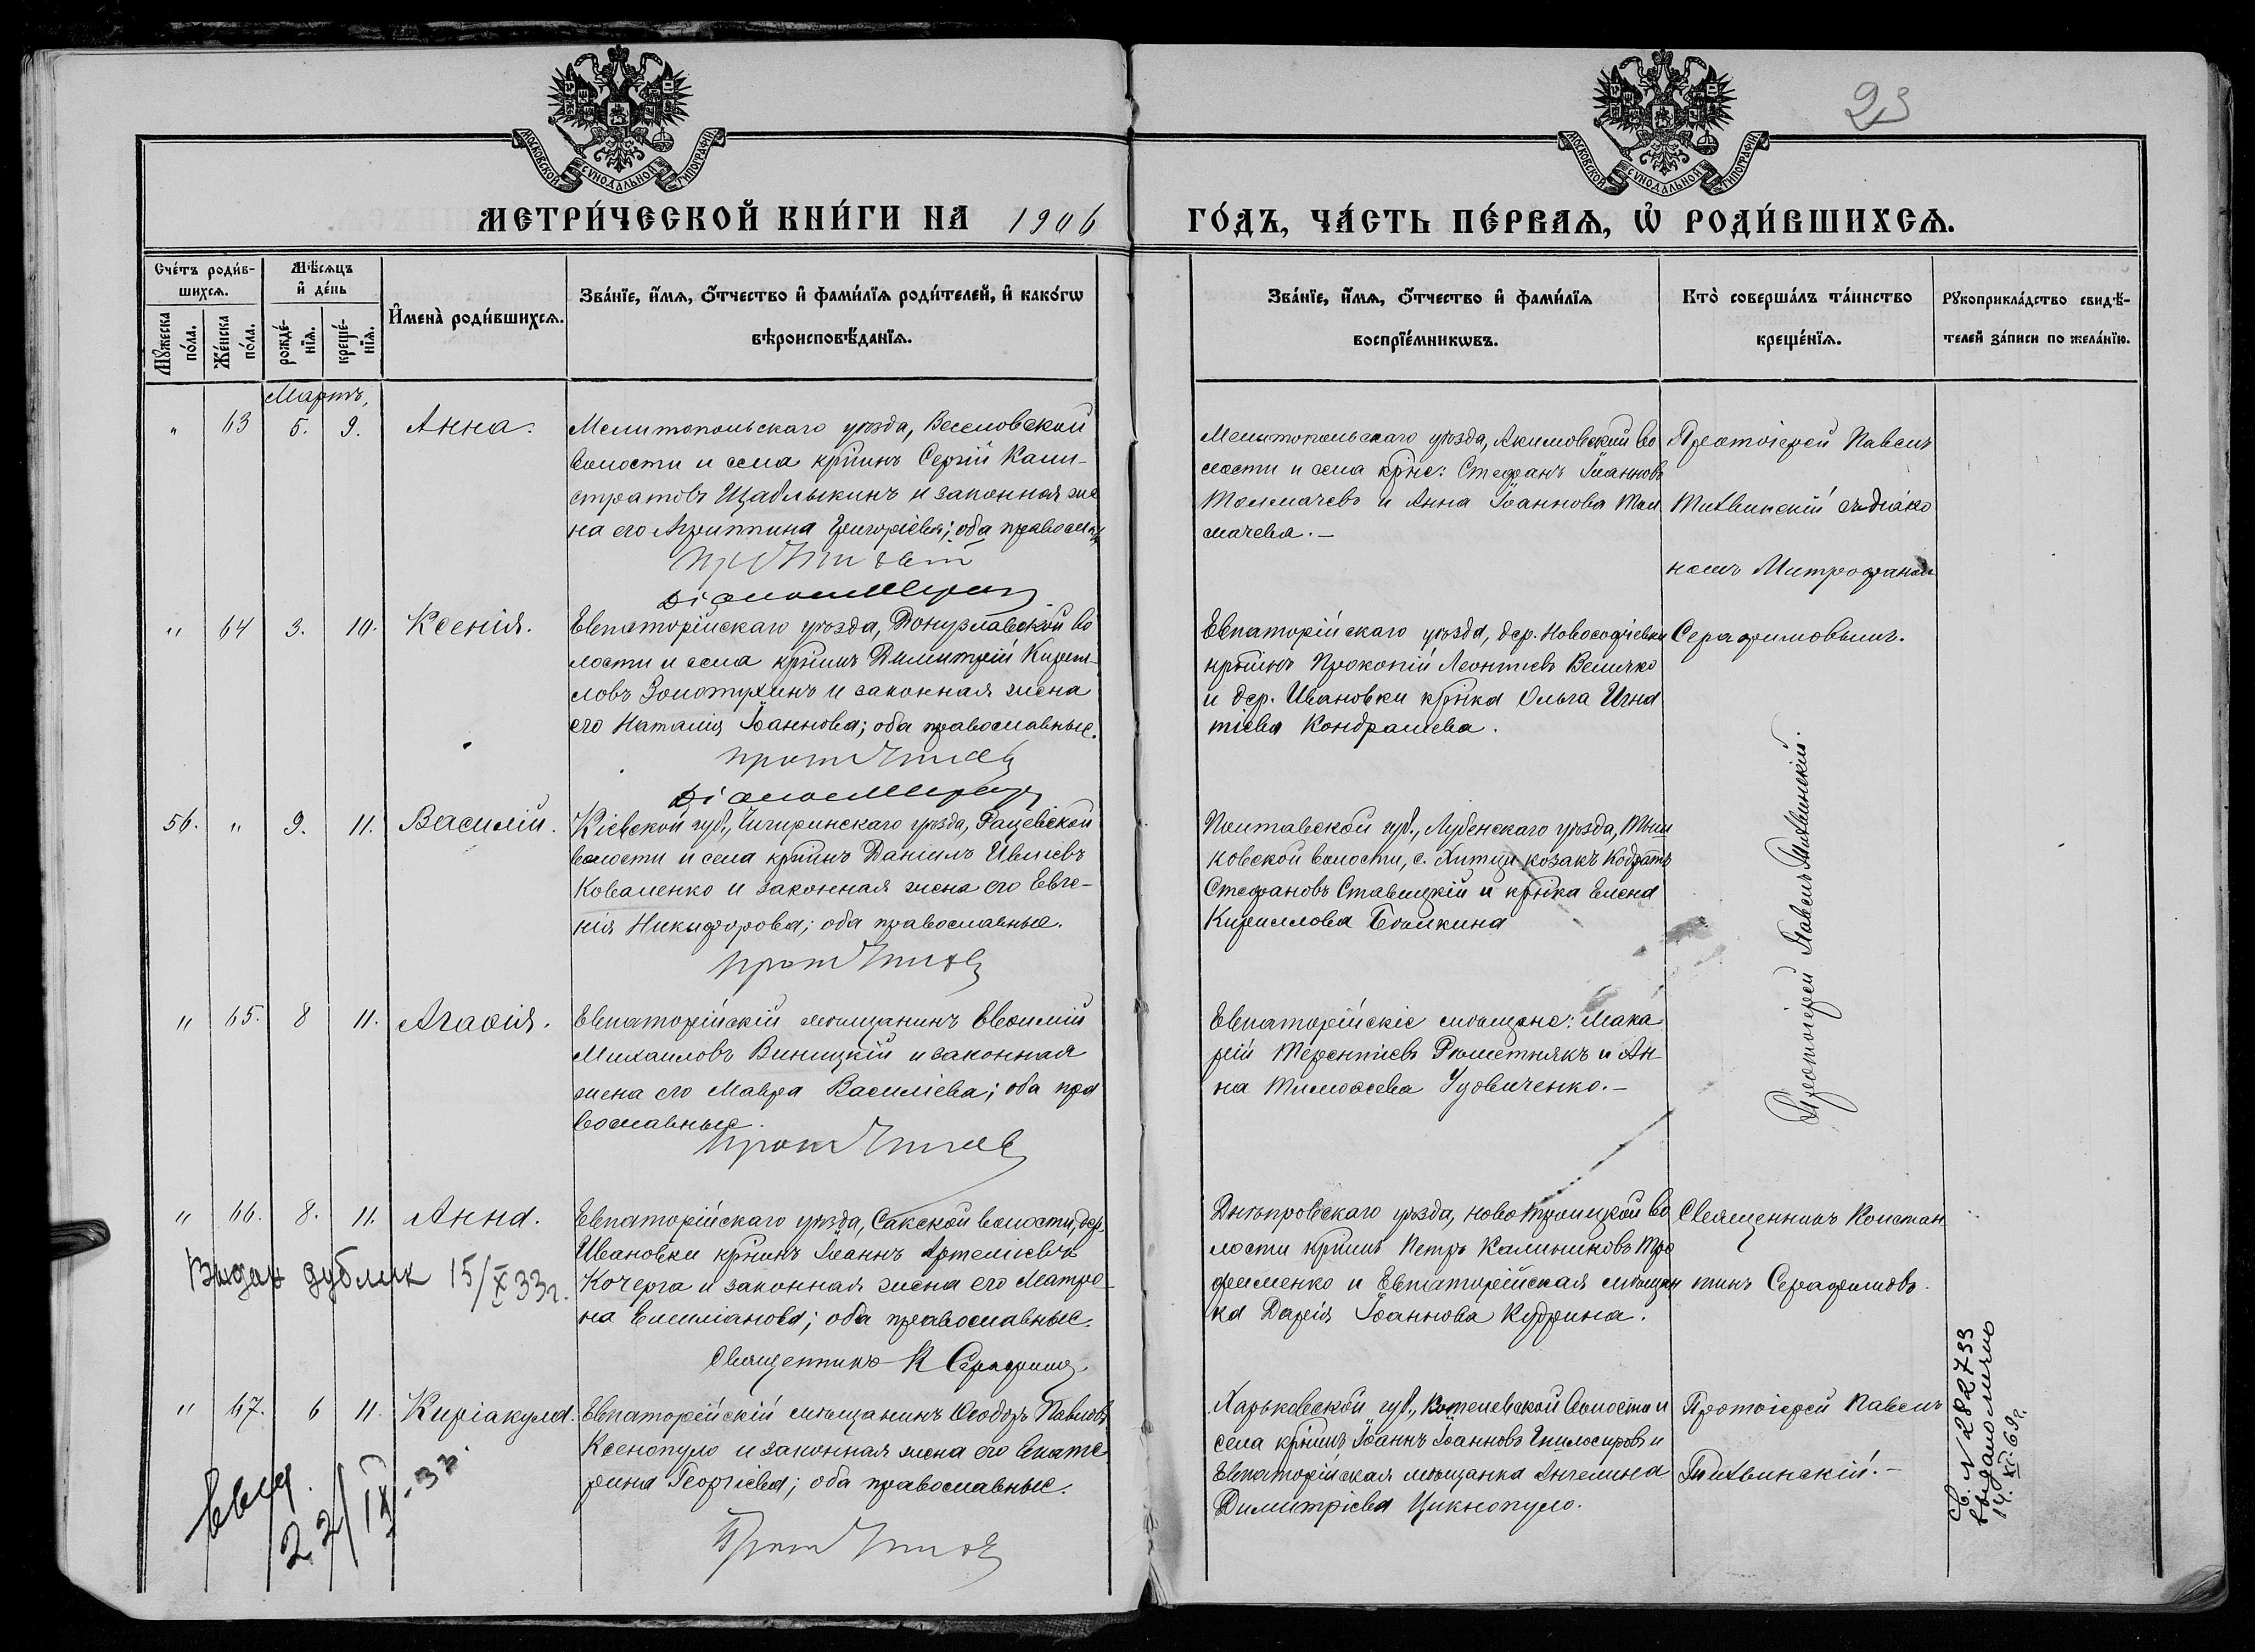 МОСКОВСКОЙ СѴНОДАЛЬНОЙ ТИПОГРАФІИ
МОСКОВСКОЙ СѴНОДАЛЬНОЙ ТИПОГРАФІИ
23
МЕТРИ́ЧЕСКОЙ КНИ́ГИ НА 1906
ГО́ДЪ, ЧА́СТЬ ПЕ́РВАѦ, Ѡ҆ РОДИ́ВШИХСѦ.
Сче́тъ роди́в-
шихсѧ.
Мꙋ́жеска по́ла.
Же́нска по́ла.
Мѣ́сѧцъ
и҆ де́нь
рожде́-
нїѧ.
креще́-
нїѧ.
И҆мена̀ роди́вшихсѧ.
Зва́нїе, и҆́мѧ, ѻ҆́тчество и҆ фами́лїѧ роди́телей, и҆ како́гѡ
вѣроисповѣ́данїѧ.
Зва́нїе, и҆́мѧ, ѻ҆́тчество и҆ фами́лїѧ
воспрїе́мникѡвъ.
Кто̀ соверша́лъ та́инство
креще́нїѧ.
Рꙋкоприкла́дство свидѣ́-
телей за́писи по жела́нїю.
Мартъ,
" 63 5. 9. Анна.
Мелитопольскаго уѣзда, Веселовской
волости и села кр҃нинъ Сергій Кали-
стратовъ Щаблыкинъ и законная же
на его Агриппина Григоріева; оба православ
Мелитопольскаго уѣзда, Акимовской во
лости и села кр҃не: Стефанъ Іоанновъ
Толмачевъ и Анна Іоаннова Тол
мачева.-
Протоіерей Павелъ
Тихвинскій съ діако
номъ Митрофаном
" 64 3. 10. Ксенія.
Евпаторійскаго уѣзда, Донузлавской во
лости и села кр҃нинъ Димитрій Кирил-
ловъ Золотухинъ и законная жена
его Наталія Іоаннова; оба православные.
Евпаторійскаго уѣзда, дер. Новософіевки
кр҃нинъ Прокопій Леонтіевъ Величко
и дер. Ивановки кр҃нка Ольга Игна
тіева Кондрашева.
Серафимовымъ.
56. " 9. 11. Василій.
Кіевской губ., Чигиринскаго уѣзда, Рацевской
волости и села кр҃нинъ Даніилъ Ивліевъ
Коваленко и законная жена его Евге-
нія Никифорова; оба православные.
Полтавской губ., Лубенскаго уѣзда,
ковской волости, с. Хитцы козакъ Кодратъ
Стефановъ Ставицкій и кр҃нка Елена
Кириллова
Протоіерей Павелъ Тихвинскій.
" 65. 8 11. Агаѳія.
Евпаторійскій мѣщанинъ Евѳимій
Михаиловъ Виницкій и законная
жена его Мавра Василіева; оба пра
вославные.
Евпаторійскіе мѣщане: Мака
рій Терентіевъ Рѣшетнякъ и Ан-
на Тимоѳеева Удовиченко.-
" 66. 8. 11. Анна.
Евпаторійскаго уѣзда, Сакской волости, дер.
Ивановки кр҃нинъ Іоаннъ Артеміевъ
Кочерга и законная жена его Матро-
на Емиліанова; оба православные.
Священникъ К Серафимов
Выдан дублик 15/X 33г.
Днѣпровскаго уѣзда, Новотроицкой во
лости кр҃нинъ Петръ Калиниковъ Тро
фименко и Евпаторійская мѣщан
ка Дарія Іоаннова Кудрина.
Священникъ Констан
тинъ Серафимовъ.
" 67. 6 11. Киріакула.
Евпаторійскій мѣщанинъ Ѳеодоръ Павловъ
Ксенопуло и законная жена его Екате
рина Георгіева; оба православные.
22/IX-33.
Харьковской губ., Котелевской волости и
села кр҃нинъ Іоаннъ Іоанновъ Гнилосировъ и
Евпаторійская мѣщанка Ангелина
Димитріева Цикнопуло.
Протоіерей Павелъ
Тихвинскій.-
Св. N 282733
выдано лично
14.XI-69г.